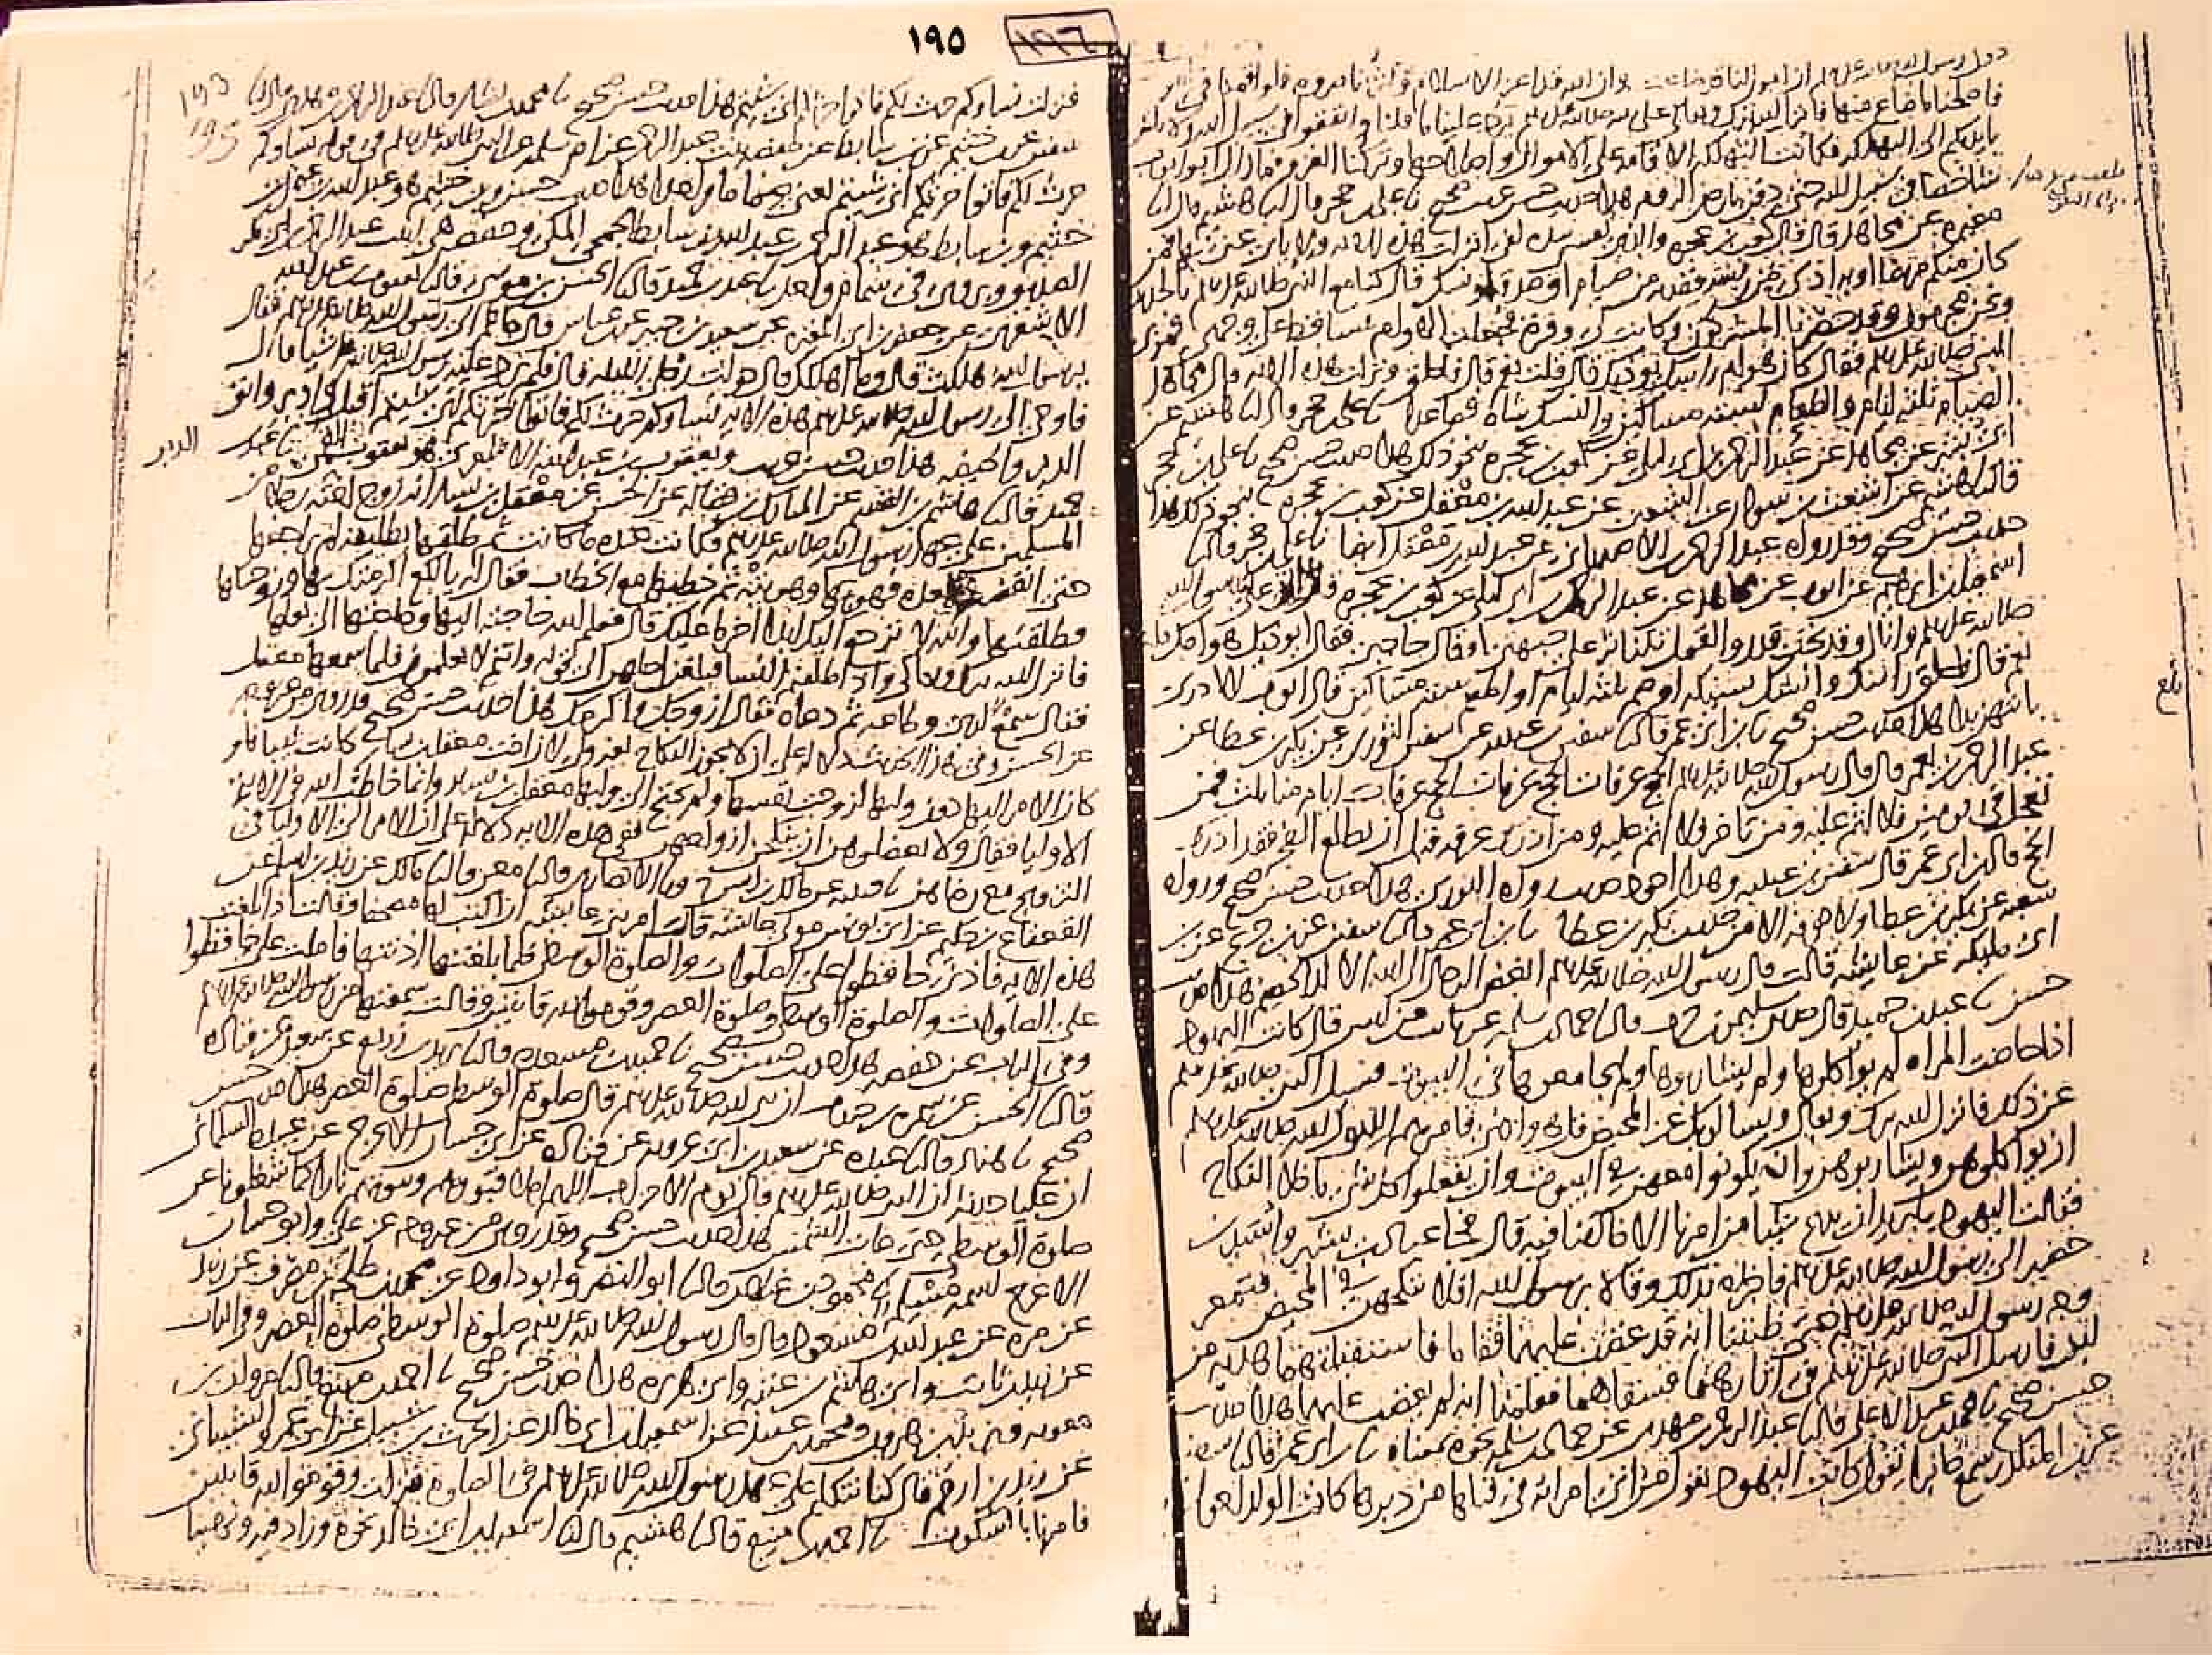 ١٩٥
١٩٦
دون رسول الله صلى الله عليه وسلم ان اموالنا قد ضاعت وان الله قد اعز الاسلام وكثر ناصروه فلو اقمنا في اموالنا
فاصلحنا ما ضاع منها فانزل الله تبرك وتعالى على نبيه صلى الله عليه وسلم يرد علينا ما قلنا وانفقوا في سبيل الله ولا تلقوا
بايديكم الى التهلكه فكانت التهلكه الاقامه على الاموال واصلاحها وتركنا الغزو فما زال ابو ايوب
شاخصا في سبيل الله حتى دفن بارض الروم هذا حديث حسن غريب صحيح نا على بن حجر قال انا هشيم قال انا
مغيره عن مجاهد قال قال كعب بن عجره والذي نفسي بيده لفي انزلت هذه الايه ولاياي عنى بها فمن
كان منكم مريضا او به اذى من راسه ففديه من صيام او صدقه او نسك قال كنا مع النبي صلى الله عليه وسلم بالحديبيه
ونحن محرمون وقد حصرنا المشركون وكانت لي وفره فجعلت الهوام تساقط على وجهي فمر بي
النبي صلى الله عليه وسلم فقال كان هوام راسك توذيك قال قلت نعم قال فاحلق ونزلت هذه الايه قال مجاهد
الصيام ثلثه ايام والطعام لسته مساكين والنسك شاه فصاعدا نا على بن حجر قال انا هشيم عن
ابي بشر عن مجاهد عن عبد الرحمن بن ابي ليلى عن كعب بن عجره بنحو ذلك هذا حديث حسن صحيح نا على بن حجر
قال انا هشيم عن اشعث بن سوار عن الشعبي عن عبد الله بن معقل عن كعب بن عجره بنحو ذلك هذا
حديث حسن صحيح وقد رواه عبد الرحمن بن الاصبهاني عن عبد الله بن معقل ايضا نا على بن حجر قال نا
اسمعيل بن ابرهيم عن ايوب عن مجاهد عن عبد الرحمن بن ابي ليلى عن كعب بن عجره قال اتى علي رسول الله
صلى الله عليه وسلم وانا اوقد تحت قدر والقمل تتناثر على جبهتي او قال حاجبي فقال ايوذيك هوام راسك قلت
نعم قال فاحلق راسك وانسك نسيكه او صم ثلثه ايام او اطعم سته مساكين قال ايوب لا ادري
بايتهن بدا هذا حديث حسن صحيح نا بن ابي عمر قال نا سفين بن عيينه عن سفين الثوري عن بكير بن عطا عن
عبد الرحمن بن يعمر قال قال رسول الله صلى الله عليه وسلم الحج عرفات الحج عرفات الحج عرفات ايام منا ثلث فمن
تعجل في يومين فلا اثم عليه ومن تاخر فلا اثم عليه ومن ادرك عرفه قبل ان يطلع الفجر فقد ادرك
الحج قال بن ابي عمر قال سفين بن عيينه وهذا اجود حديث رواه الثوري هذا حديث حسن صحيح ورواه
شعبه عن بكير بن عطا ولا نعرفه الا من حديث بكير بن عطا نا بن ابي عمر قال نا سفين عن بن جريج عن بن
ابي مليكه عن عايشه قالت قال رسول الله صلى الله عليه وسلم ابغض الرجال الى الله الالد الخصم هذا حديث
حسن نا عبد بن حميد قال حدثني سليمن بن حرب قال نا حماد بن سلمه عن ثابت عن انس قال كانت اليهود
اذا حاضت المراه لم يواكلوها ولم يشاربوها ولم يجامعوها في البيوت فسيل النبي صلى الله عليه وسلم
عن ذلك فانزل الله تبرك وتعالى ويسالونك عن المحيض قل هو اذى فامرهم رسول الله صلى الله عليه وسلم
ان يواكلوهن ويشاربوهن وان يكونوا معهن في البيوت وان يفعلوا كل شي ما خلا النكاح
فقالت اليهود ما يريد ان يدع شيا من امرنا الا خالفنا فيه قال فجا عباد بن بشر واسيد بن
حضير الى رسول الله صلى الله عليه وسلم فاخبراه بذلك وقالا يرسول الله افلا ننكحهن في المحيض فتمعر
وجه رسول الله صلى الله عليه وسلم حتى ظننا انه قد غضب عليهما فقاما فاستقبلتهما هديه من
لبن فارسل النبي صلى الله عليه وسلم في اثارهما فسقاهما فعلمنا انه لم يغضب عليهما هذا حديث
حسن صحيح نا محمد بن عبد الاعلى قال نا عبد الرحمن بن مهدي عن حماد بن سلمه نحوه بمعناه نا بن ابي عمر قال نا سفين
عن بن المنكدر سمع جابرا يقول كانت اليهود تقول من اتى امراته في قبلها من دبرها كان الولد احول
فنزلت نساوكم حرث لكم فاتوا حرثكم انى شيتم هذا حديث حسن صحيح نا محمد بن بشار قال نا عبد الرحمن بن مهدي قال نا
سفين عن بن خثيم عن بن سابط عن حفصه بنت عبد الرحمن عن ام سلمه عن النبي صلى الله عليه وسلم في قوله نساوكم
حرث لكم فاتوا حرثكم انى شيتم يعني صماما واحدا هذا حديث حسن وبن خثيم هو عبد الله بن عثمن بن
خثيم وبن سابط هو عبد الرحمن بن عبد الله بن سابط الجمحي المكي وحفصه هي بنت عبد الرحمن بن ابي بكر
الصديق ويروى في سمام واحد نا عبد بن حميد قال نا الحسن بن موسى قال نا يعقوب بن عبد الله
الاشعري عن جعفر بن ابي المغيره عن سعيد بن جبير عن بن عباس قال جا عمر الى رسول الله صلى الله عليه وسلم فقال
يرسول الله هلكت قال وما اهلكك قال حولت رحلي الليله قال فلم يرد عليه رسول الله صلى الله عليه وسلم شيا قال
فاوحى الى رسول الله صلى الله عليه وسلم هذه الايه نساوكم حرث لكم فاتوا حرثكم انى شيتم اقبل وادبر واتق
الدبر والحيضه هذا حديث حسن غريب ويعقوب بن عبد الله الاشعري هو يعقوب القمي نا عبد بن
حميد قال نا هاشم بن القسم عن المبارك بن فضاله عن الحسن عن معقل بن يسار انه زوج اخته رجلا من
المسلمين على عهد رسول الله صلى الله عليه وسلم فكانت عنده ما كانت ثم طلقها تطليقه لم يراجعها
حتى انقضت العده فهويها وهويته ثم خطبها مع الخطاب فقال له يا لكع اكرمتك بها وزوجتكها
فطلقتها والله لا ترجع اليك ابدا اخر ما عليك قال فعلم الله حاجته اليها وحاجتها الى بعلها
فانزل الله تبرك وتعالى واذا طلقتم النسا فبلغن اجلهن الى قوله وانتم لا تعلمون فلما سمعها معقل
قال سمع لربي وطاعه ثم دعاه فقال ازوجك واكرمك هذا حديث حسن صحيح وقد روي من غير وجه
عن الحسن وفي هذا الحديث دلاله على انه لا يجوز النكاح بغير ولي لان اخت معقل بن يسار كانت ثيبا فلو
كان الامر اليها دون وليها لزوجت نفسها ولم تحتج الى وليها معقل بن يسار وانما خاطب الله في الايه
الاوليا فقال ولا تعضلوهن ان ينكحن ازواجهن ففي هذه الايه دلاله على ان الامر الى الاوليا في
التزويج مع رضاهن نا قتيبه عن مالك بن انس ح ونا الانصاري قال نا معن قال نا مالك عن زيد بن اسلم عن
القعقاع بن حكيم عن ابي يونس مولى عايشه قال امرتني عايشه ان اكتب لها مصحفا وقالت اذا بلغت
هذه الايه فاذني حافظوا على الصلوات والصلوة الوسطى فلما بلغتها اذنتها فاملت علي حافظوا
على الصلوات والصلوة الوسطى وصلوة العصر وقوموا لله قانتين وقالت سمعتها من رسول الله صلى الله عليه وسلم
وفي الباب عن حفصه هذا حديث حسن صحيح نا حميد بن مسعده قال نا يزيد بن زريع عن سعيد عن قتاده
قال نا الحسن عن سمره بن جندب ان نبي الله صلى الله عليه وسلم قال صلوة الوسطى صلوة العصر هذا حديث حسن
صحيح نا هناد قال نا عبده عن سعيد بن ابي عروبه عن قتاده عن ابي حسان الاعرج عن عبيده السلماني
ان عليا حدثه ان النبي صلى الله عليه وسلم قال يوم الاحزاب اللهم املا قبورهم وبيوتهم نارا كما شغلونا عن
صلوة الوسطى حتى غابت الشمس هذا حديث حسن صحيح وقد روي من غير وجه عن علي وابو حسان
الاعرج اسمه مسلم نا محمود بن غيلان قال نا ابو النضر وابو داود عن محمد بن طلحه بن مصرف عن زبيد
عن مره عن عبد الله بن مسعود قال قال رسول الله صلى الله عليه وسلم صلوة الوسطى صلوة العصر وفي الباب
عن زيد بن ثابت وابي هاشم بن عتبه وابي هريره هذا حديث حسن صحيح نا احمد بن منيع قال نا مرون بن
معويه ويزيد بن هرون ومحمد بن عبيد عن اسمعيل بن ابي خالد عن الحرث بن شبيل عن ابي عمرو الشيباني
عن زيد بن ارقم قال كنا نتكلم على عهد رسول الله صلى الله عليه وسلم في الصلوة فنزلت وقوموا لله قانتين
فامرنا بالسكوت نا احمد بن منيع قال نا هشيم قال انا اسمعيل بن ابي خالد نحوه وزاد فيه ونهينا
الدبر